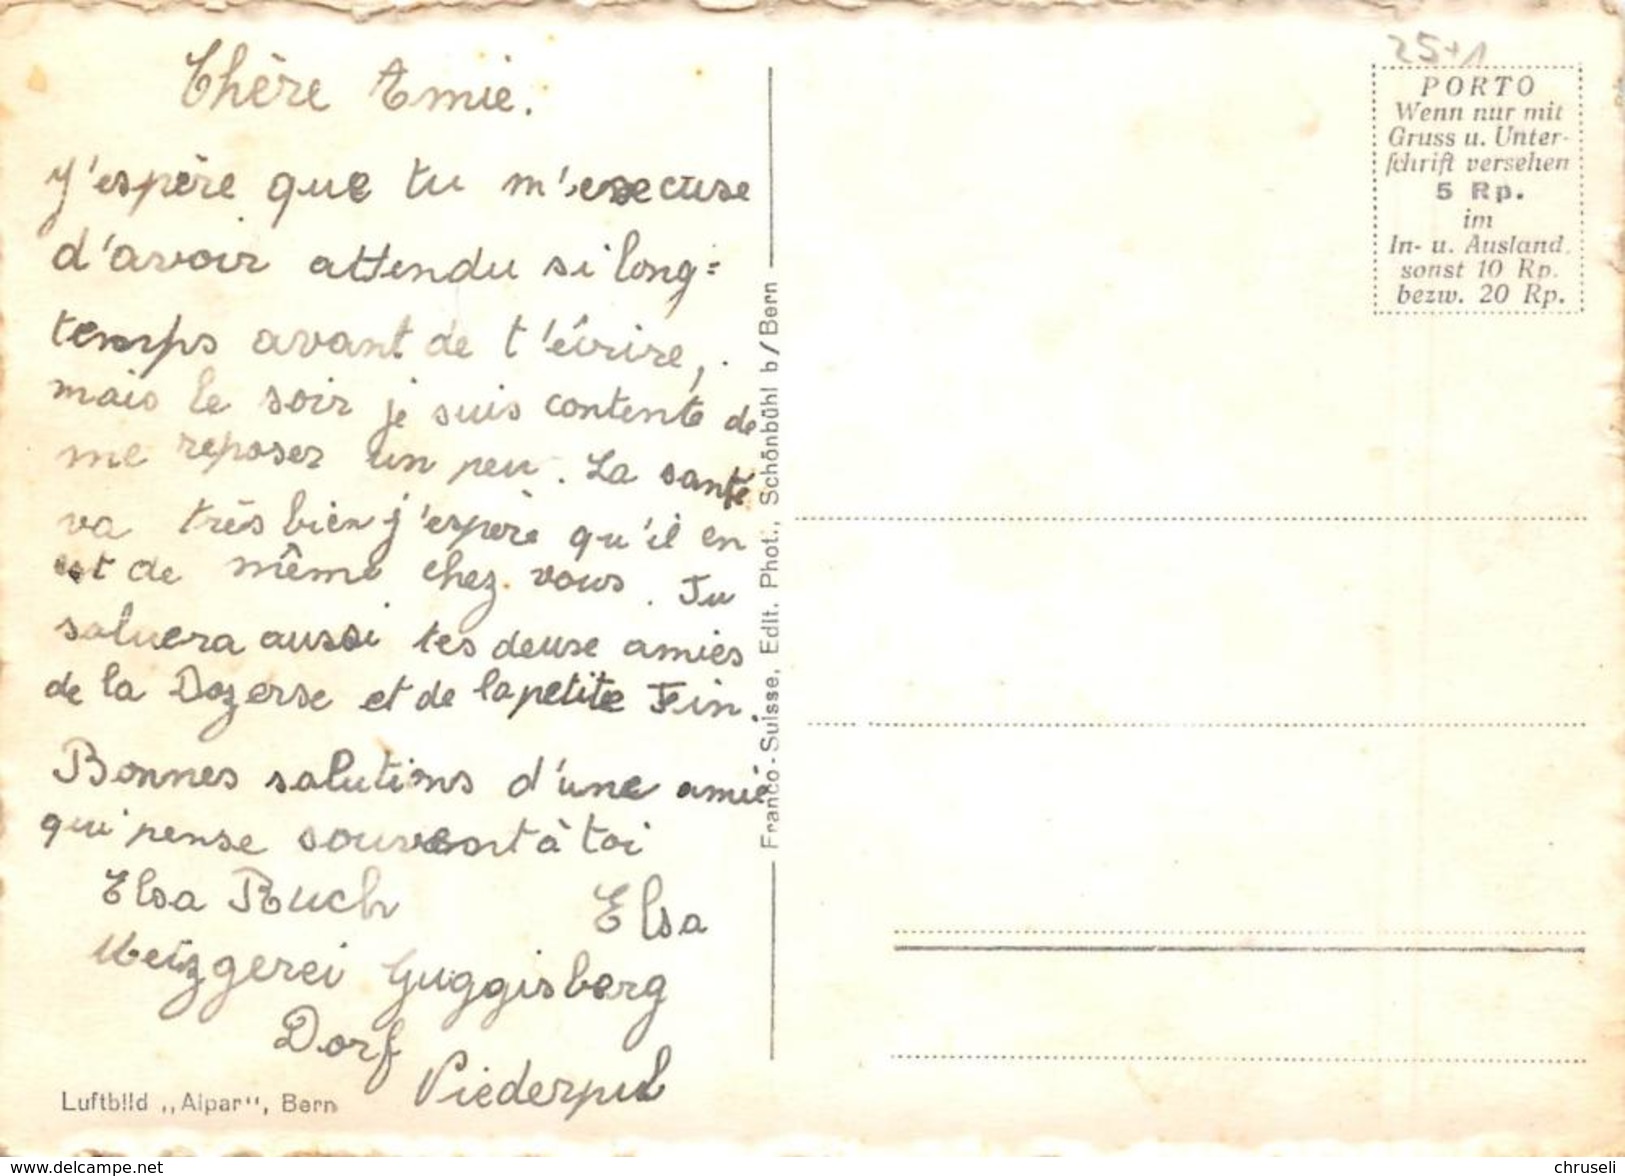 Chère Amie.
J'espère que tu m'excuse
d'avoir attendu si long=
temps avant de t'écrire,
mais le soir je suis contente de
me reposer un peu. La santé
va très bien j'espère qu'il en
est de même chez vous. Tu
saluera aussi tes deuse amies
de la Dozerse et de la petite Fin.
Bonnes salutions d'une amie
qui pense souvent à toi
Elsa Ruch Elsa
Metzgerei Guggisberg
Dorf
Niederpul
Luftbild „Alpar", Bern
Franco-Suisse, Edit. Phot., Schönbühl b/Bern
25+1
PORTO
Wenn nur mit
Gruss u. Unter-
schrift versehen
5 Rp.
im
In- u. Ausland.
sonst 10 Rp.
bezw. 20 Rp.
www.delcampe.net
chruseli